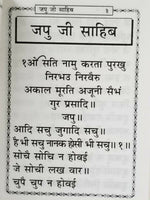 जपु जी साहिब
३
जपु जी साहिब
१ओं सति नामु करता पुरखु
निरभउ निरवैरु
अकाल मूरति अजूनी सैभं
गुर प्रसादि॥
जपु॥
आदि सचु जुगादि सचु॥
है भी सचु नानक होसी भी सचु॥१॥
सोचै सोचि न होवई
जे सोची लख वार॥
चुपै चुप न होवई